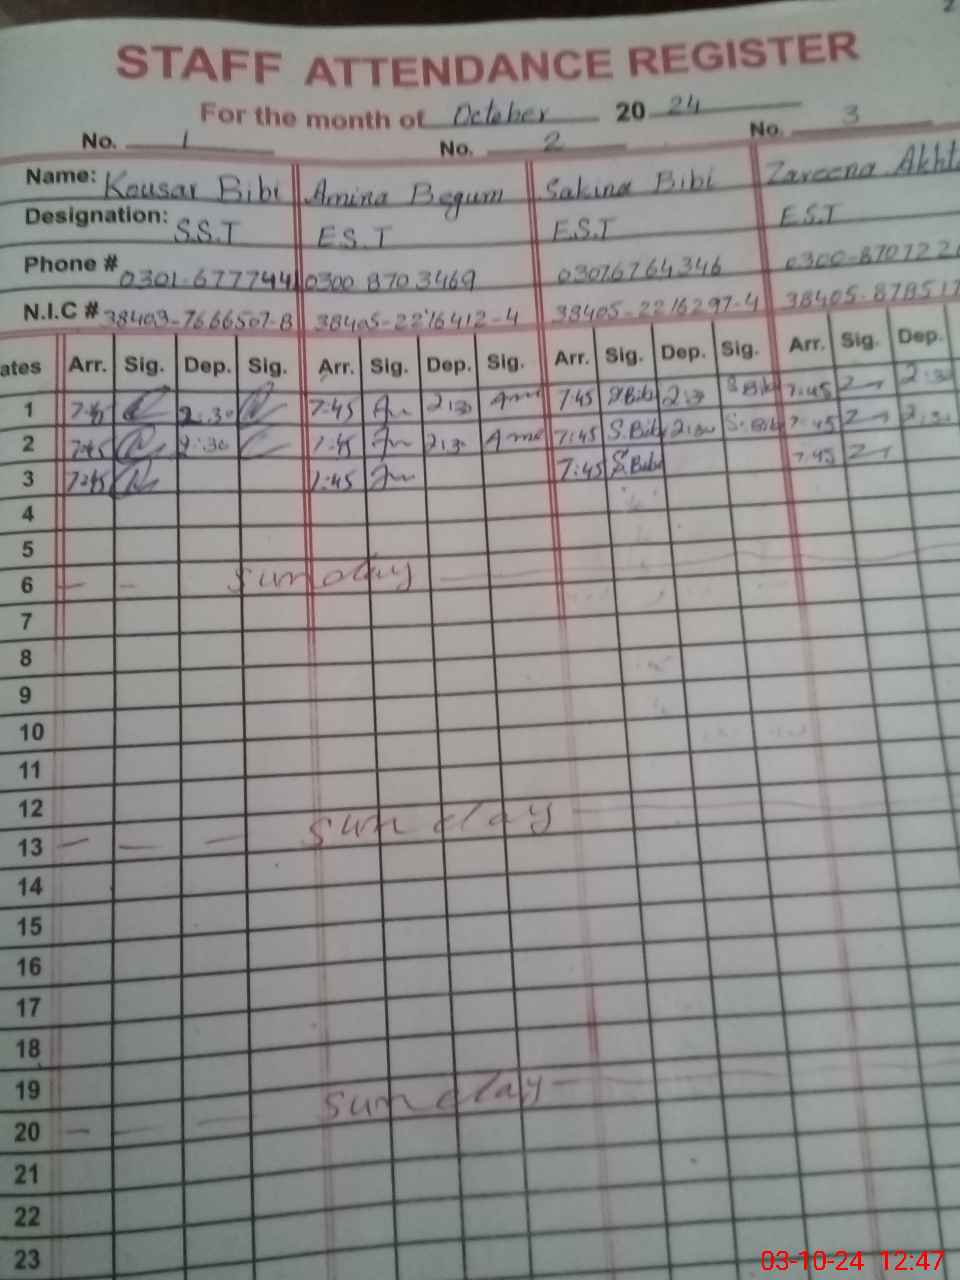 STAFF ATTENDANCE REGISTER
For the month of October 20 24
No. 1 No. 2 No. 3
Name: Kousar Bibi Amina Begum Sakina Bibi Zareena Akht
Designation: S.S.T E.S.T E.S.T E.S.T
Phone # 0301-6777441 0300 8703469 03076764346 0300-870722
N.I.C # 38403-7666507-8 38405-2216412-4 38405-2216297-4 38405-878517
ates Arr. Sig. Dep. Sig. Arr. Sig. Dep. Sig. Arr. Sig. Dep. Sig. Arr. Sig. Dep.
1 7:45 2:30 7:45 Am 2:30 Am 7:45 S.Bibi 2:3 S.Bibi 7:45 Z 2:30
2 7:45 2:30 7:45 Am 2:30 Am 7:45 S.Bibi 2:30 S.Bibi 7:45 Z 2:30
3 7:45 7:45 Am 7:45 S.Bibi 7:45 Z
4
5
6 - - sunday
7
8
9
10
11
12
13 - - - sunday
14
15
16
17
18
19
20 - - - sunday
21
22
23
03-10-24 12:47